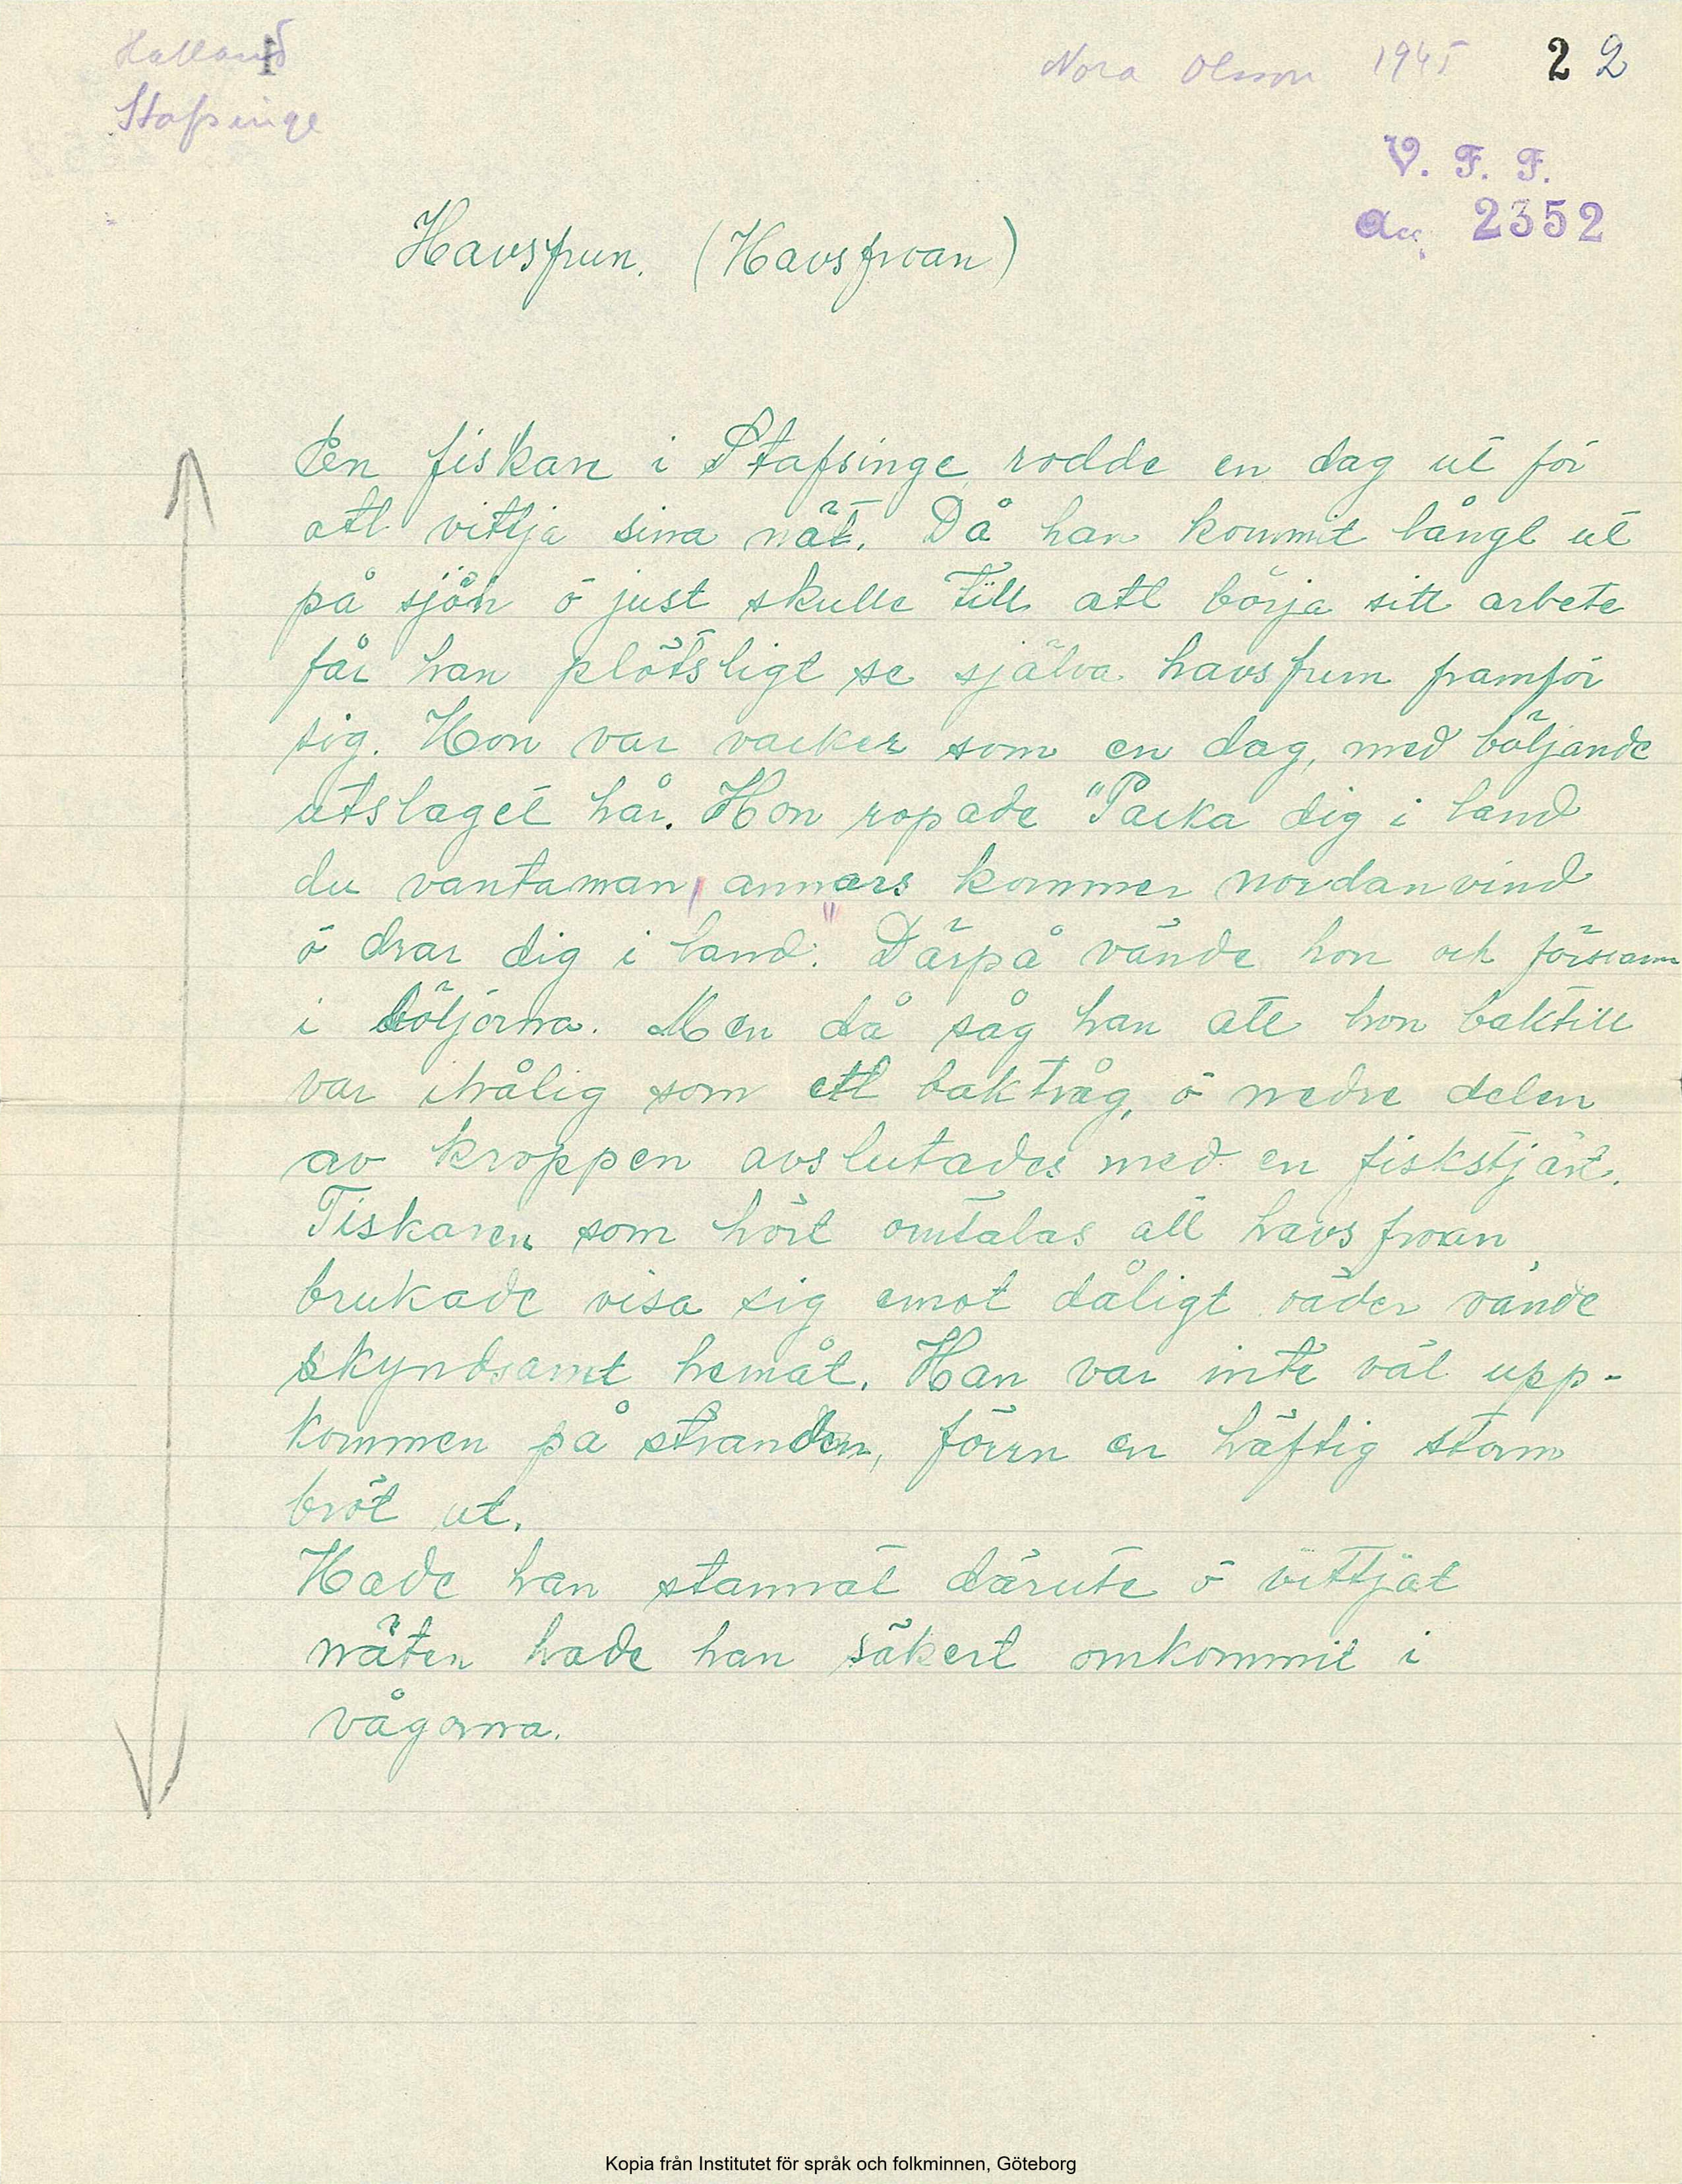 Halland
Nora Olsson 1945 2 2
Stafsinge
V. F. F.
2352
Havsfrun. (Havsfroan)
En fiskare i Stafsinge rodde en dag ut för
att vittja sina nät. Då han kommit långt ut
på sjön ö just skulle till att börja sitt arbete
får han plötsligt se själva havsfrun framför
sig. Hon var vacker som en dag, med böljande
utslaget hår. Hon ropade "Packa dig i land
du vantaman, annars kommer nordanvind
ö drar dig i land." Därpå vände hon och försvann
i böljorna. Men då såg han att hon baktill
var ihålig som ett baktråg, ö nedre delen
av kroppen avslutades med en fiskstjärt.
Fiskaren som hört omtalas att havsfroan
brukade visa sig emot dåligt väder vände
skyndsamt hemåt. Han var inte väl upp-
kommen på stranden, förrn en häftig storm
bröt ut.
Hade han stannat därute ö vittjat
näten hade han säkert omkommit i
vågorna.
Kopia från Institutet för språk och folkminnen, Göteborg